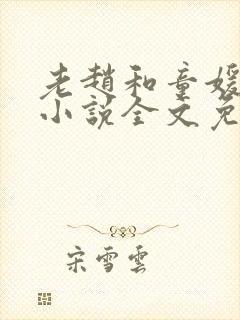 老趙和童媛
小說全文免
宋雪雲